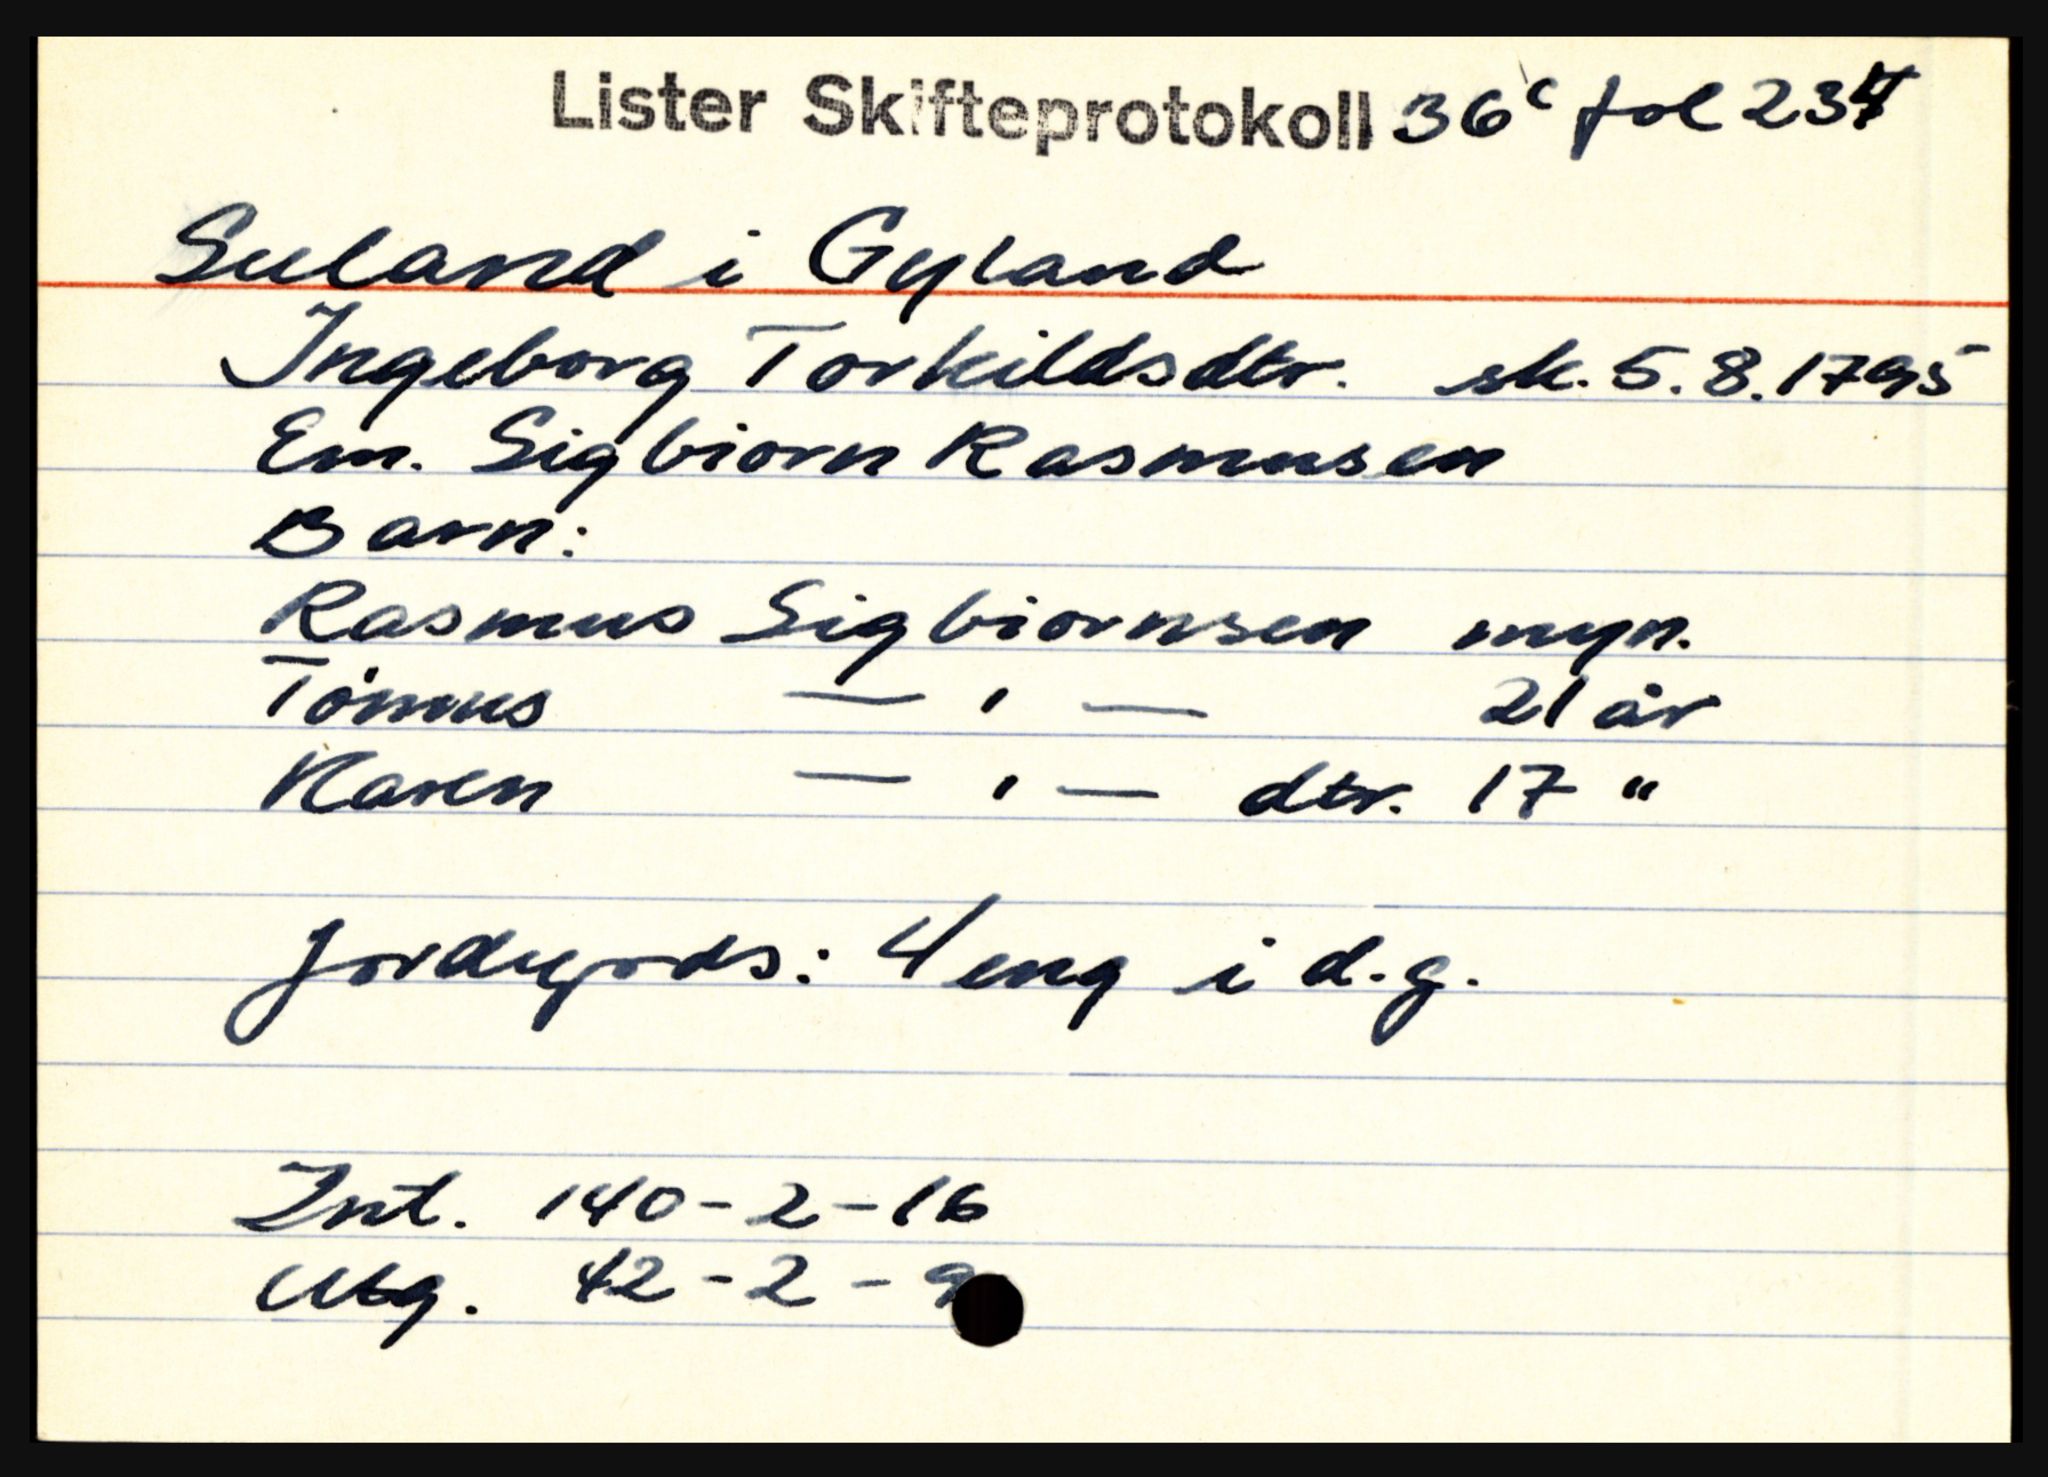 Lister Skifteprotokoll 36c fol 234
Suland i Gyland
Ingeborg Torkildsdtr. sk. 5.8.1795
Em. Sigbiorn Rasmusen
Barn:
Rasmus Sigbiornsen myn.
Tønnus — " — 21 år
Karen — " — dtr. 17 "
Jordegods: 4 eng i d.g.
Int. 140-2-16
Utg. 42-2-9